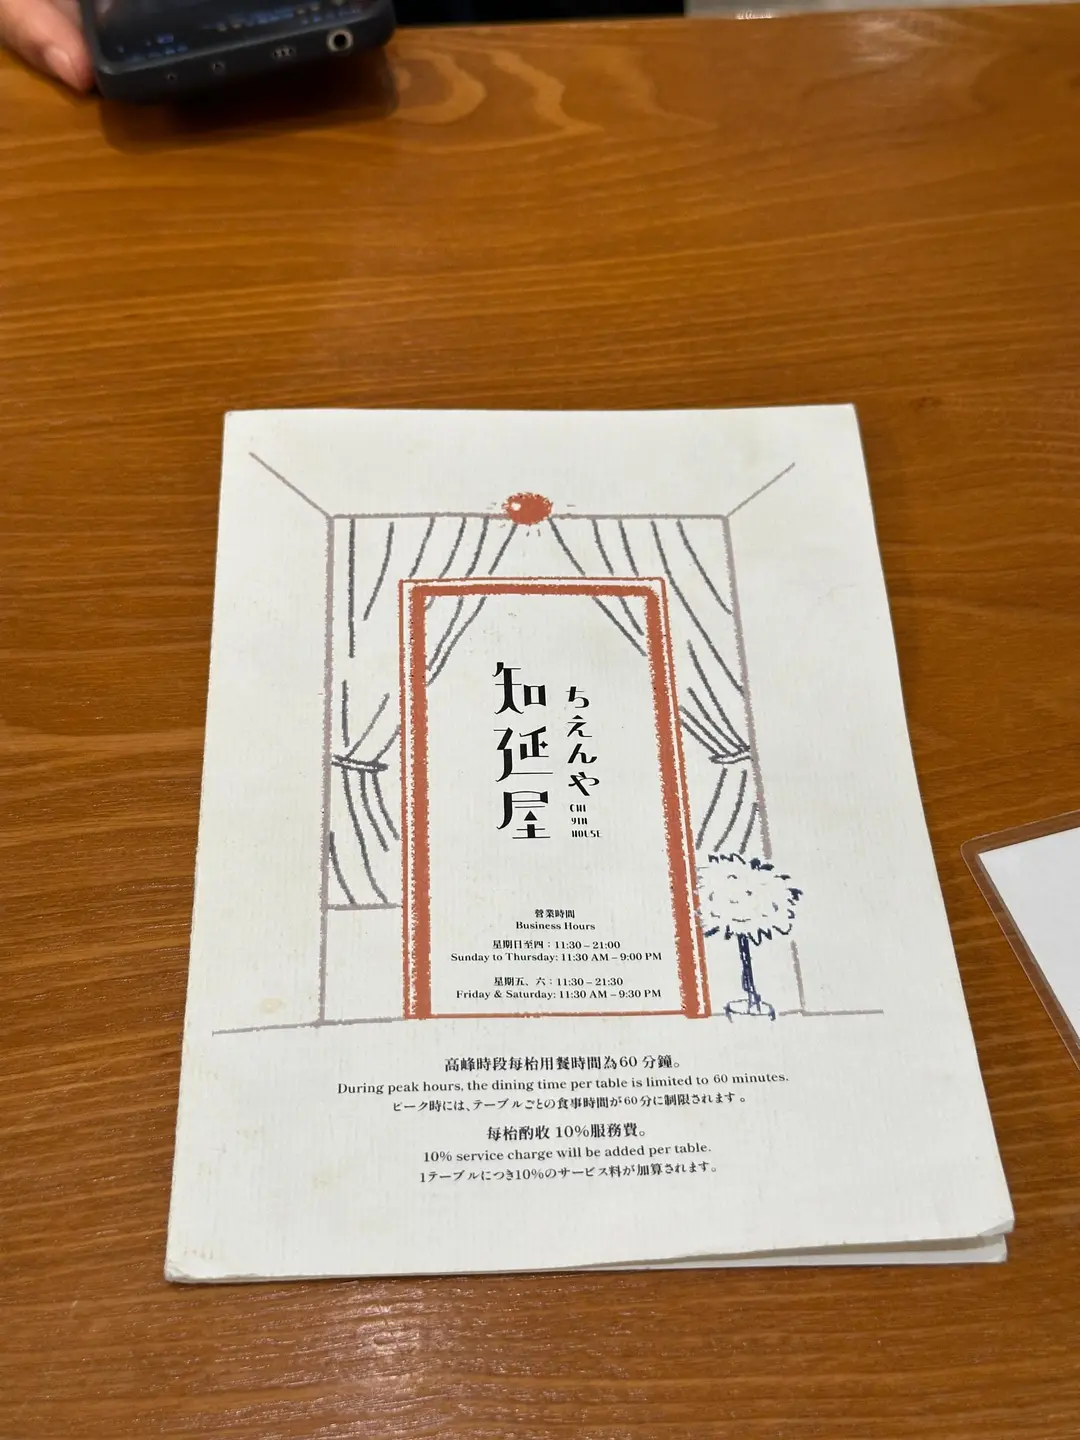 知延屋
ちえんや
CHI
YEN
HOUSE
營業時間
Business Hours
星期日至四：11:30 – 21:00
Sunday to Thursday: 11:30 AM – 9:00 PM
星期五、六：11:30 – 21:30
Friday & Saturday: 11:30 AM – 9:30 PM
高峰時段每枱用餐時間為60 分鐘。
During peak hours, the dining time per table is limited to 60 minutes.
ピーク時には、テーブルごとの食事時間が60分に制限されます。
每枱酌收 10%服務費。
10% service charge will be added per table.
1テーブルにつき10%のサービス料が加算されます。